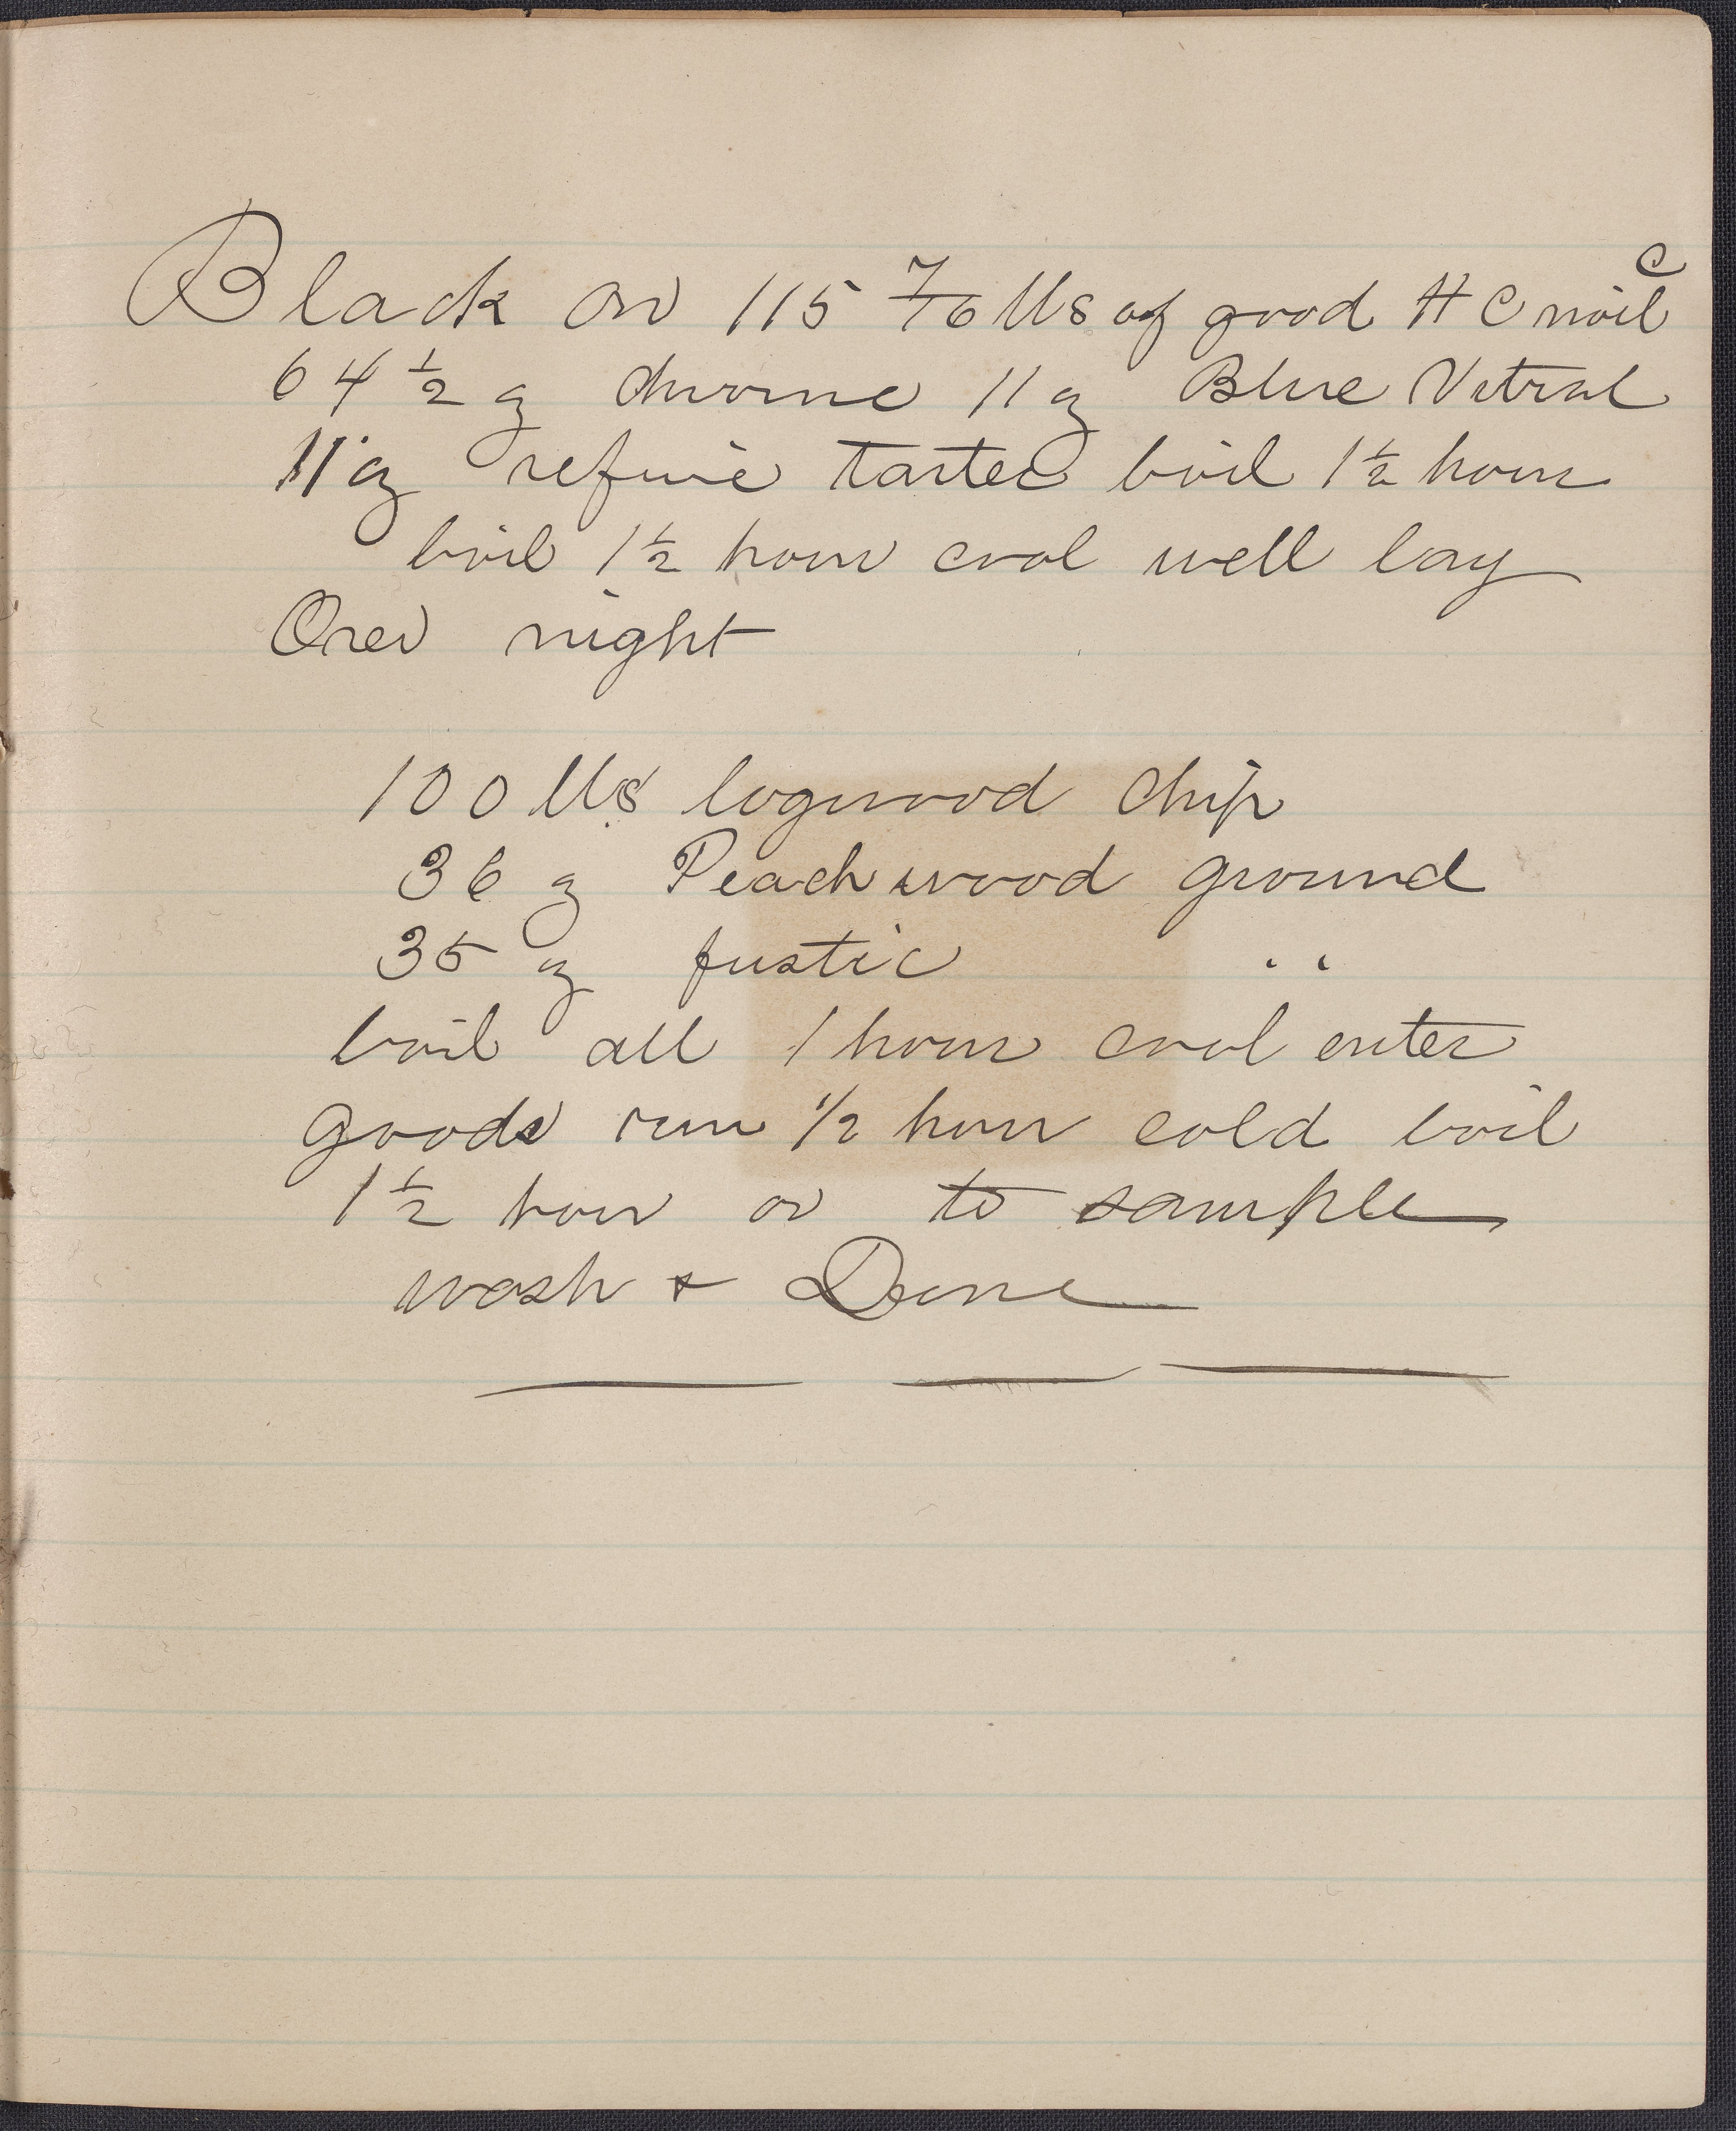 Black on 115 7/16 lbs of good H C noil c
64 1/2 oz chrome 11 oz Blue Vitrol
11 oz refine tarter boil 1 1/2 hour
boil 1 1/2 hour cool well lay
Over night
100 lbs logwood chip
36 oz Peach wood ground
35 oz fustic "
boil all 1 hour cool enter
goods run 1/2 hour cold boil
1 1/2 hour or to sample
wash & Done